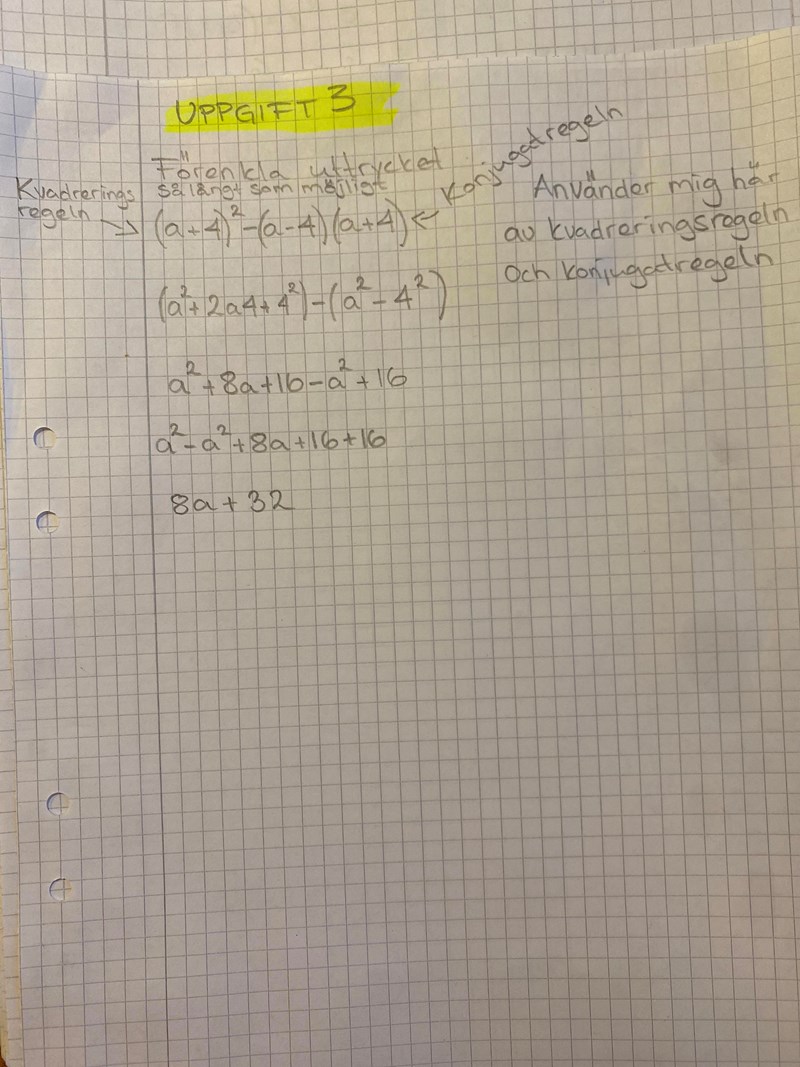 UPPGIFT 3
Förenkla uttrycket
så långt som möjligt
Kvadrerings
regeln →
(a+4)²-(a-4)(a+4) ← Konjugatregeln
Använder mig här
av kvadreringsregeln
och konjugatregeln
(a²+2a4+4²)-(a²-4²)
a²+8a+16-a²+16
a²-a²+8a+16+16
8a+32